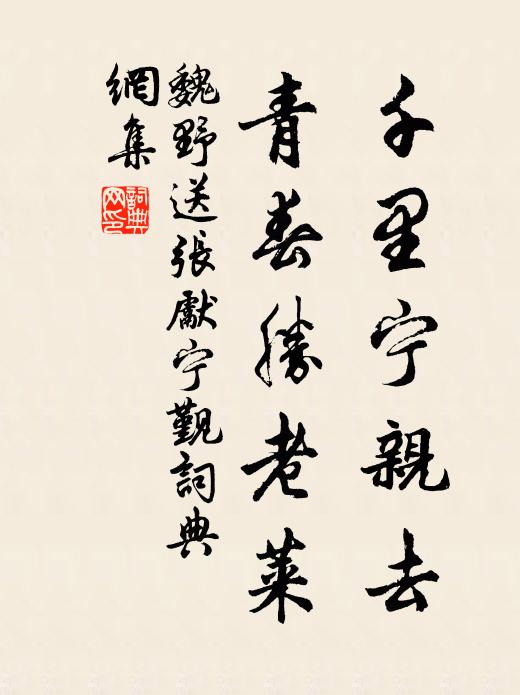 千里宁親去
青春勝老萊
魏野送張獻宁觀詞典
網集
詞典
网印